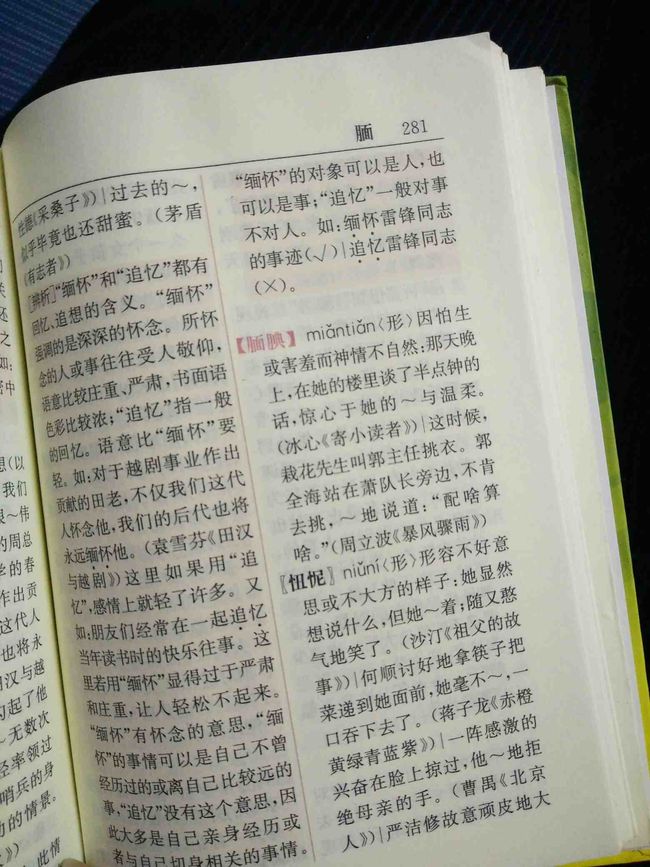 腼 281
杜德《采桑子》)|过去的～,
似乎毕竟也还甜蜜。(茅盾
《有志者》)
[辨析]“缅怀”和“追忆”都有
回忆、追想的含义。“缅怀”
强调的是深深的怀念。所怀
念的人或事往往受人敬仰,
语意比较庄重、严肃,书面语
色彩比较浓;“追忆”指一般
的回忆。语意比“缅怀”要
轻。如:对于越剧事业作出
贡献的田老,不仅我们这代
人怀念他,我们的后代也将
永远缅怀他。(袁雪芬《田汉
与越剧》)这里如果用“追
忆”,感情上就轻了许多。又
如:朋友们经常在一起追忆
当年读书时的快乐往事。这
里若用“缅怀”显得过于严肃
和庄重,让人轻松不起来。
“缅怀”有怀念的意思,“缅
怀”的事情可以是自己不曾
经历过的或离自己比较远的
事,“追忆”没有这个意思,因
此大多是自己亲身经历或
者与自己切身相关的事情。
“缅怀”的对象可以是人,也
可以是事;“追忆”一般对事
不对人。如:缅怀雷锋同志
的事迹(√)|追忆雷锋同志
(×)。
【腼腆】 miǎntiǎn〈形〉因怕生
或害羞而神情不自然:那天晚
上,在她的楼里谈了半点钟的
话,惊心于她的～与温柔。
(冰心《寄小读者》)|这时候,
栽花先生叫郭主任挑衣。郭
全海站在萧队长旁边,不肯
去挑,～地说道:“配啥算
啥。”(周立波《暴风骤雨》)
〖忸怩〗 niǔní〈形〉形容不好意
思或不大方的样子:她显然
想说什么,但她～着;随又憨
气地笑了。(沙汀《祖父的故
事》)|何顺讨好地拿筷子把
菜递到她面前,她毫不～,一
口吞下去了。(蒋子龙《赤橙
黄绿青蓝紫》)|一阵感激的
兴奋在脸上掠过,他～地拒
绝母亲的手。(曹禺《北京
人》)|严洁修故意顽皮地大